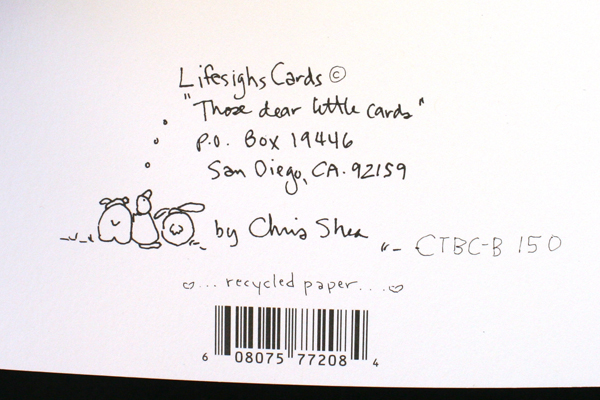 Lifesighs Cards ©
"Those dear little cards"
P.O. Box 19446
San Diego, CA. 92159
by Chris Shea
CTBC-B 150
... recycled paper ...
6 08075 77208 4